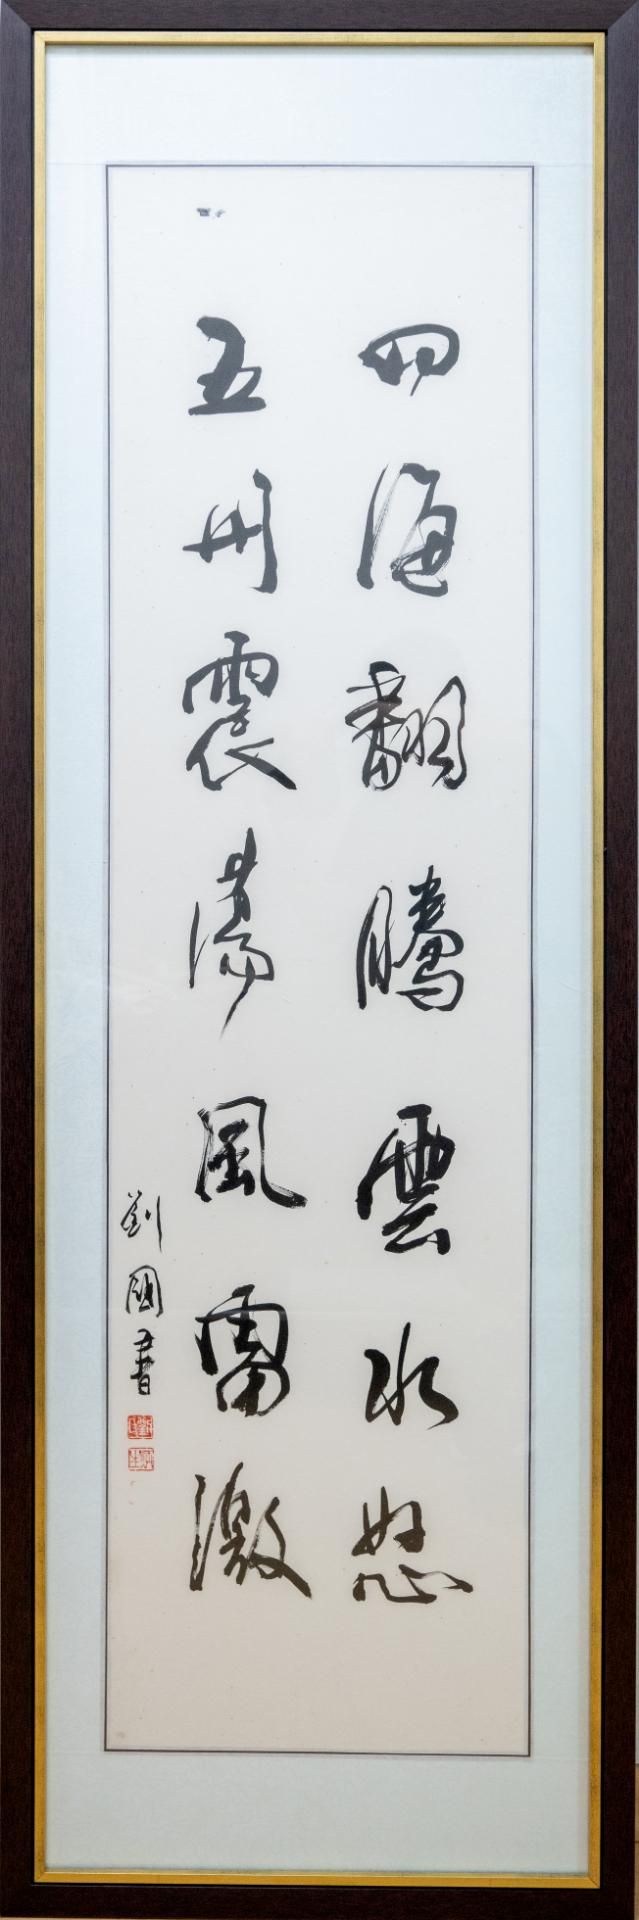 四海翻騰雲水怒
五州震盪風雷激
劉國書